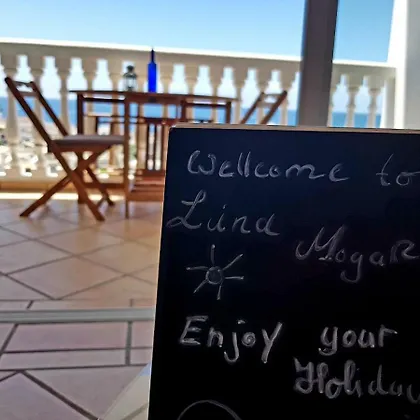 Wellcome to
Lúna
MogaR
Enjoy your
Holiday